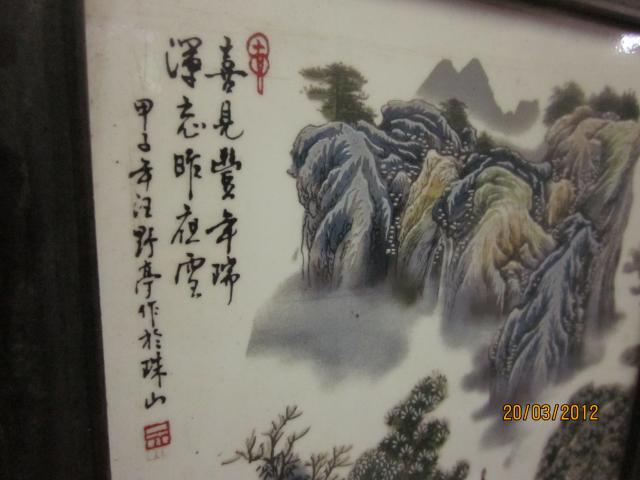 喜見豐年瑞
渾忘昨夜雪
甲子年汪野亭作於珠山
20/03/2012